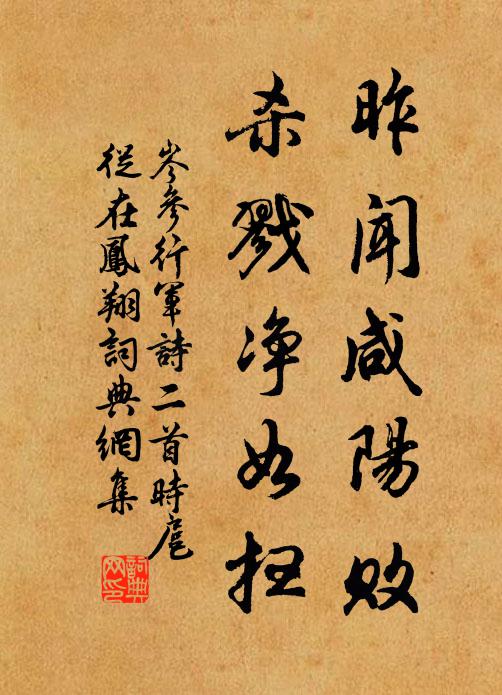 昨闻咸陽败
杀戮净如扫
岑參行軍詩二首時扈
從在鳳翔詞典網集
詞典网印